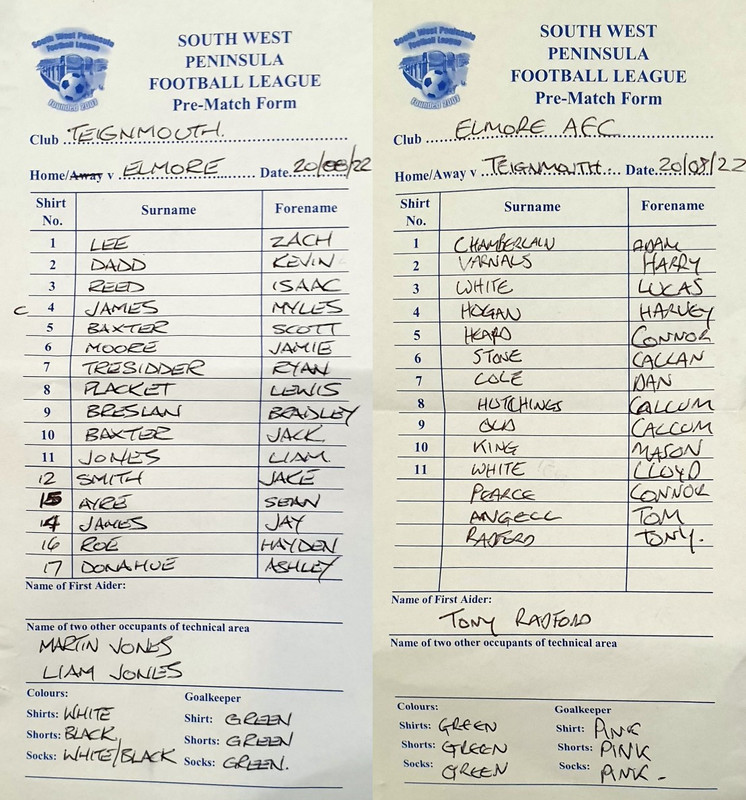 South West Peninsula
Football League
founded 2007
SOUTH WEST
PENINSULA
FOOTBALL LEAGUE
Pre-Match Form
Club TEIGNMOUTH.
Home/Away v ELMORE Date 20/08/22
Shirt No. Surname Forename
1 LEE ZACH
2 DADD KEVIN
3 REED ISAAC
C 4 JAMES MYLES
5 BAXTER SCOTT
6 MOORE JAMIE
7 TRESIDDER RYAN
8 PLACKET LEWIS
9 BRESLAN BRADLEY
10 BAXTER JACK
11 JONES LIAM
12 SMITH JAKE
15 AYRE SEAN
14 JAMES JAY
16 ROE HAYDEN
17 DONAHUE ASHLEY
Name of First Aider:
Name of two other occupants of technical area
MARTIN JONES
LIAM JONES
Colours: Goalkeeper
Shirts: WHITE Shirt: GREEN
Shorts: BLACK Shorts: GREEN
Socks: WHITE/BLACK Socks: GREEN.
South West Peninsula
Football League
founded 2007
SOUTH WEST
PENINSULA
FOOTBALL LEAGUE
Pre-Match Form
Club ELMORE AFC
Home/Away v TEIGNMOUTH Date 20/08/22
Shirt No. Surname Forename
1 CHAMBERLAIN ADAM
2 VARNALS HARRY
3 WHITE LUCAS
4 HOGAN HARVEY
5 HEARD CONNOR
6 STONE CALLAN
7 COLE DAN
8 HUTCHINGS CALLUM
9 OLD CALLUM
10 KING MASON
11 WHITE LLOYD
PEARCE CONNOR
ANGELL TOM
RADFORD TONY.
Name of First Aider:
TONY RADFORD
Name of two other occupants of technical area
Colours: Goalkeeper
Shirts: GREEN Shirt: PINK
Shorts: GREEN Shorts: PINK
Socks: GREEN Socks: PINK -